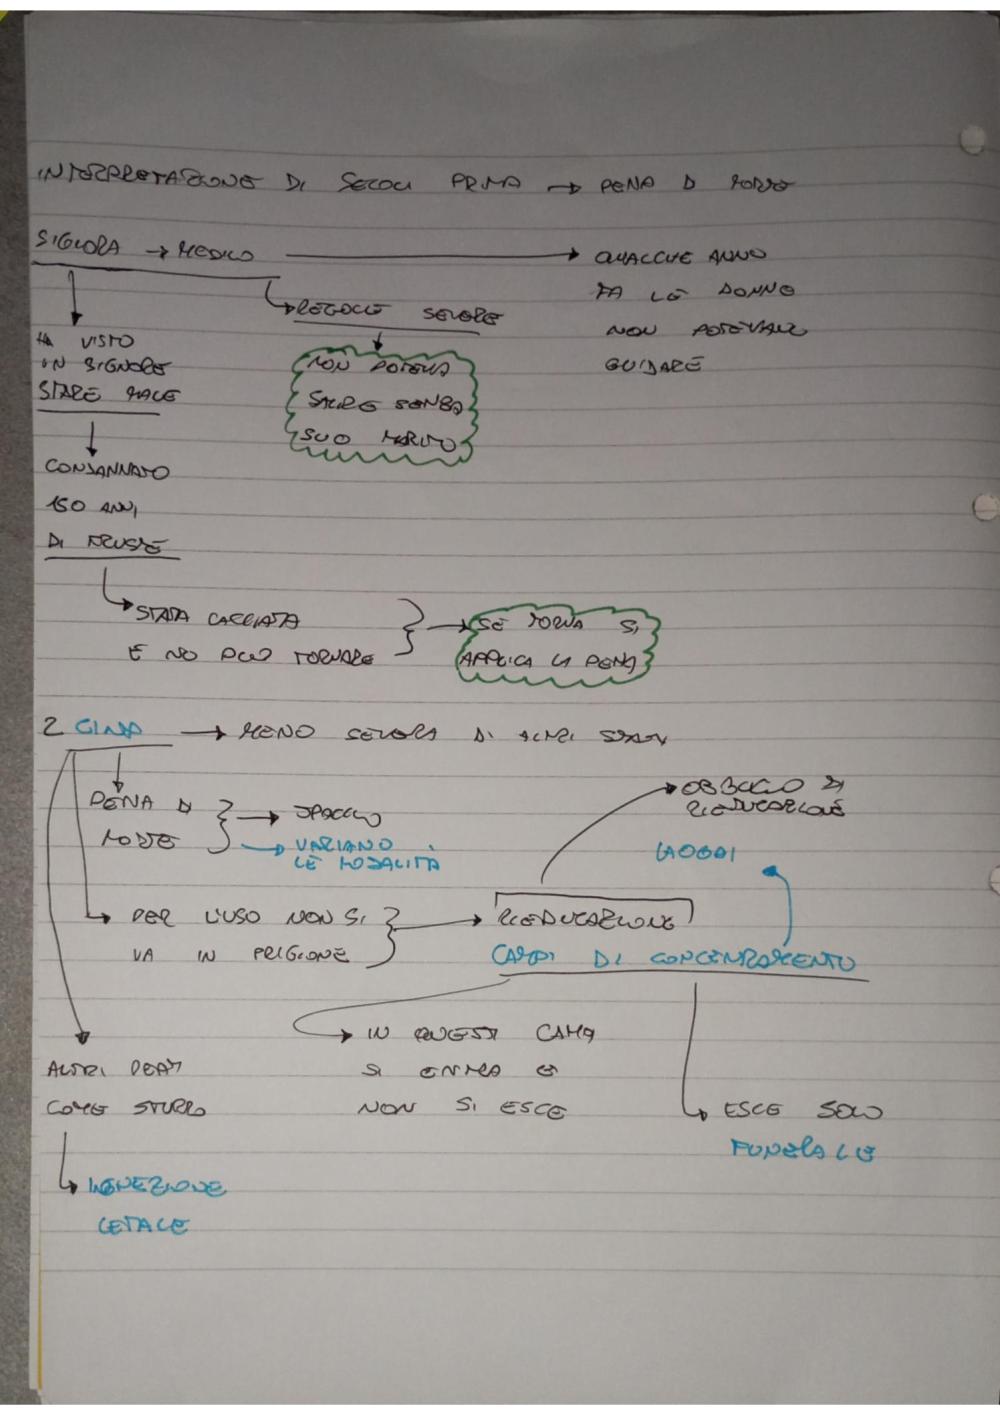 INTERPRETAZIONE DI SECOLI PRIMA → PENA DI MORTE
SIGNORA → MEDICO → QUALCHE ANNO
FA LE DONNE
NON POTEVANO
GUIDARE
REGOLE SEVERE
NON POTEVA
SALIRE SENZA
SUO MARITO
HA VISTO
UN SIGNORE
STARE MALE
CONDANNATO
150 ANNI
DI FRUSTE
STATA CACCIATA
E NO PUO TORNARE
SE TORNA SI
APPLICA LA PENA
2 CINA → MENO SEVERA DI ALTRI STATI
PENA DI
MORTE
→ SPACCIO
→ VARIANO
LE MODALITÀ
OBBLIGO DI
RIEDUCAZIONE
LAOGAI
PER L'USO NON SI
VA IN PRIGIONE
→ RIEDUCAZIONE
CAMPI DI CONCENTRAMENTO
IN QUESTI CAMPI
SI ENTRA E
NON SI ESCE
ESCE SOLO
FUNERALE
ALTRI REATI
COME STUPRO
INIEZIONE
LETALE